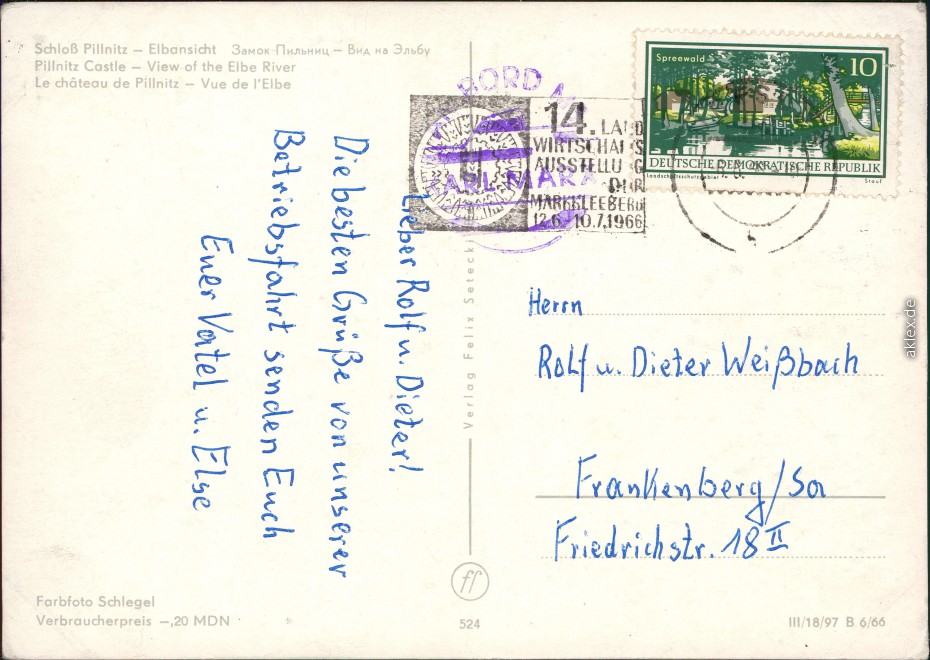 Schloß Pillnitz – Elbansicht Замок Пильниц – Вид на Эльбу
Pillnitz Castle – View of the Elbe River
Le château de Pillnitz – Vue de l'Elbe
Lieber Rolf u. Dieter!
Die besten Grüße von unserer
Betriebsfahrt senden Euch
Euer Vatel u. Else
Verlag Felix Seteck
ff
BORD
KARL MARX
14. LAND
WIRTSCHAFTS
AUSSTELLUNG
DER
MARKKLEEBERG
12.6.-10.7.1966
Spreewald
10
DEUTSCHE DEMOKRATISCHE REPUBLIK
Landschaftsschutzgebiet Stauf
Herrn
Rolf u. Dieter Weißbach
Frankenberg/Sa
Friedrichstr. 18 II
Farbfoto Schlegel
Verbraucherpreis –,20 MDN
524
III/18/97 B 6/66
aklex.de